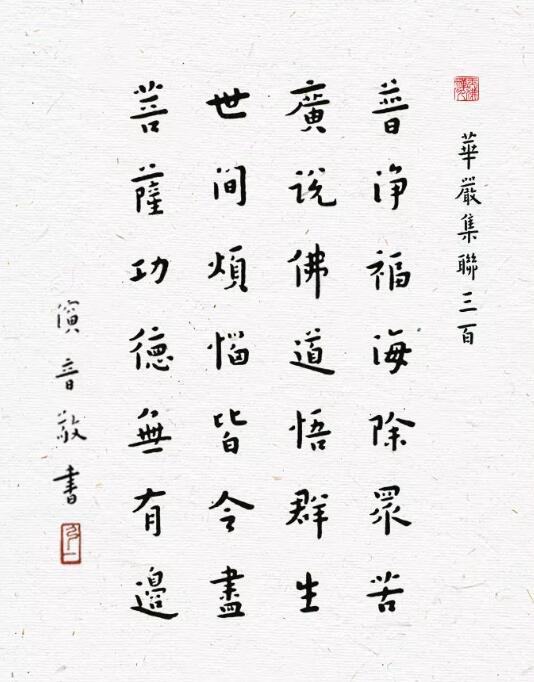 華嚴集聯三百
普淨福海除眾苦
廣說佛道悟群生
世間煩惱皆令盡
菩薩功德無有邊
演音敬書